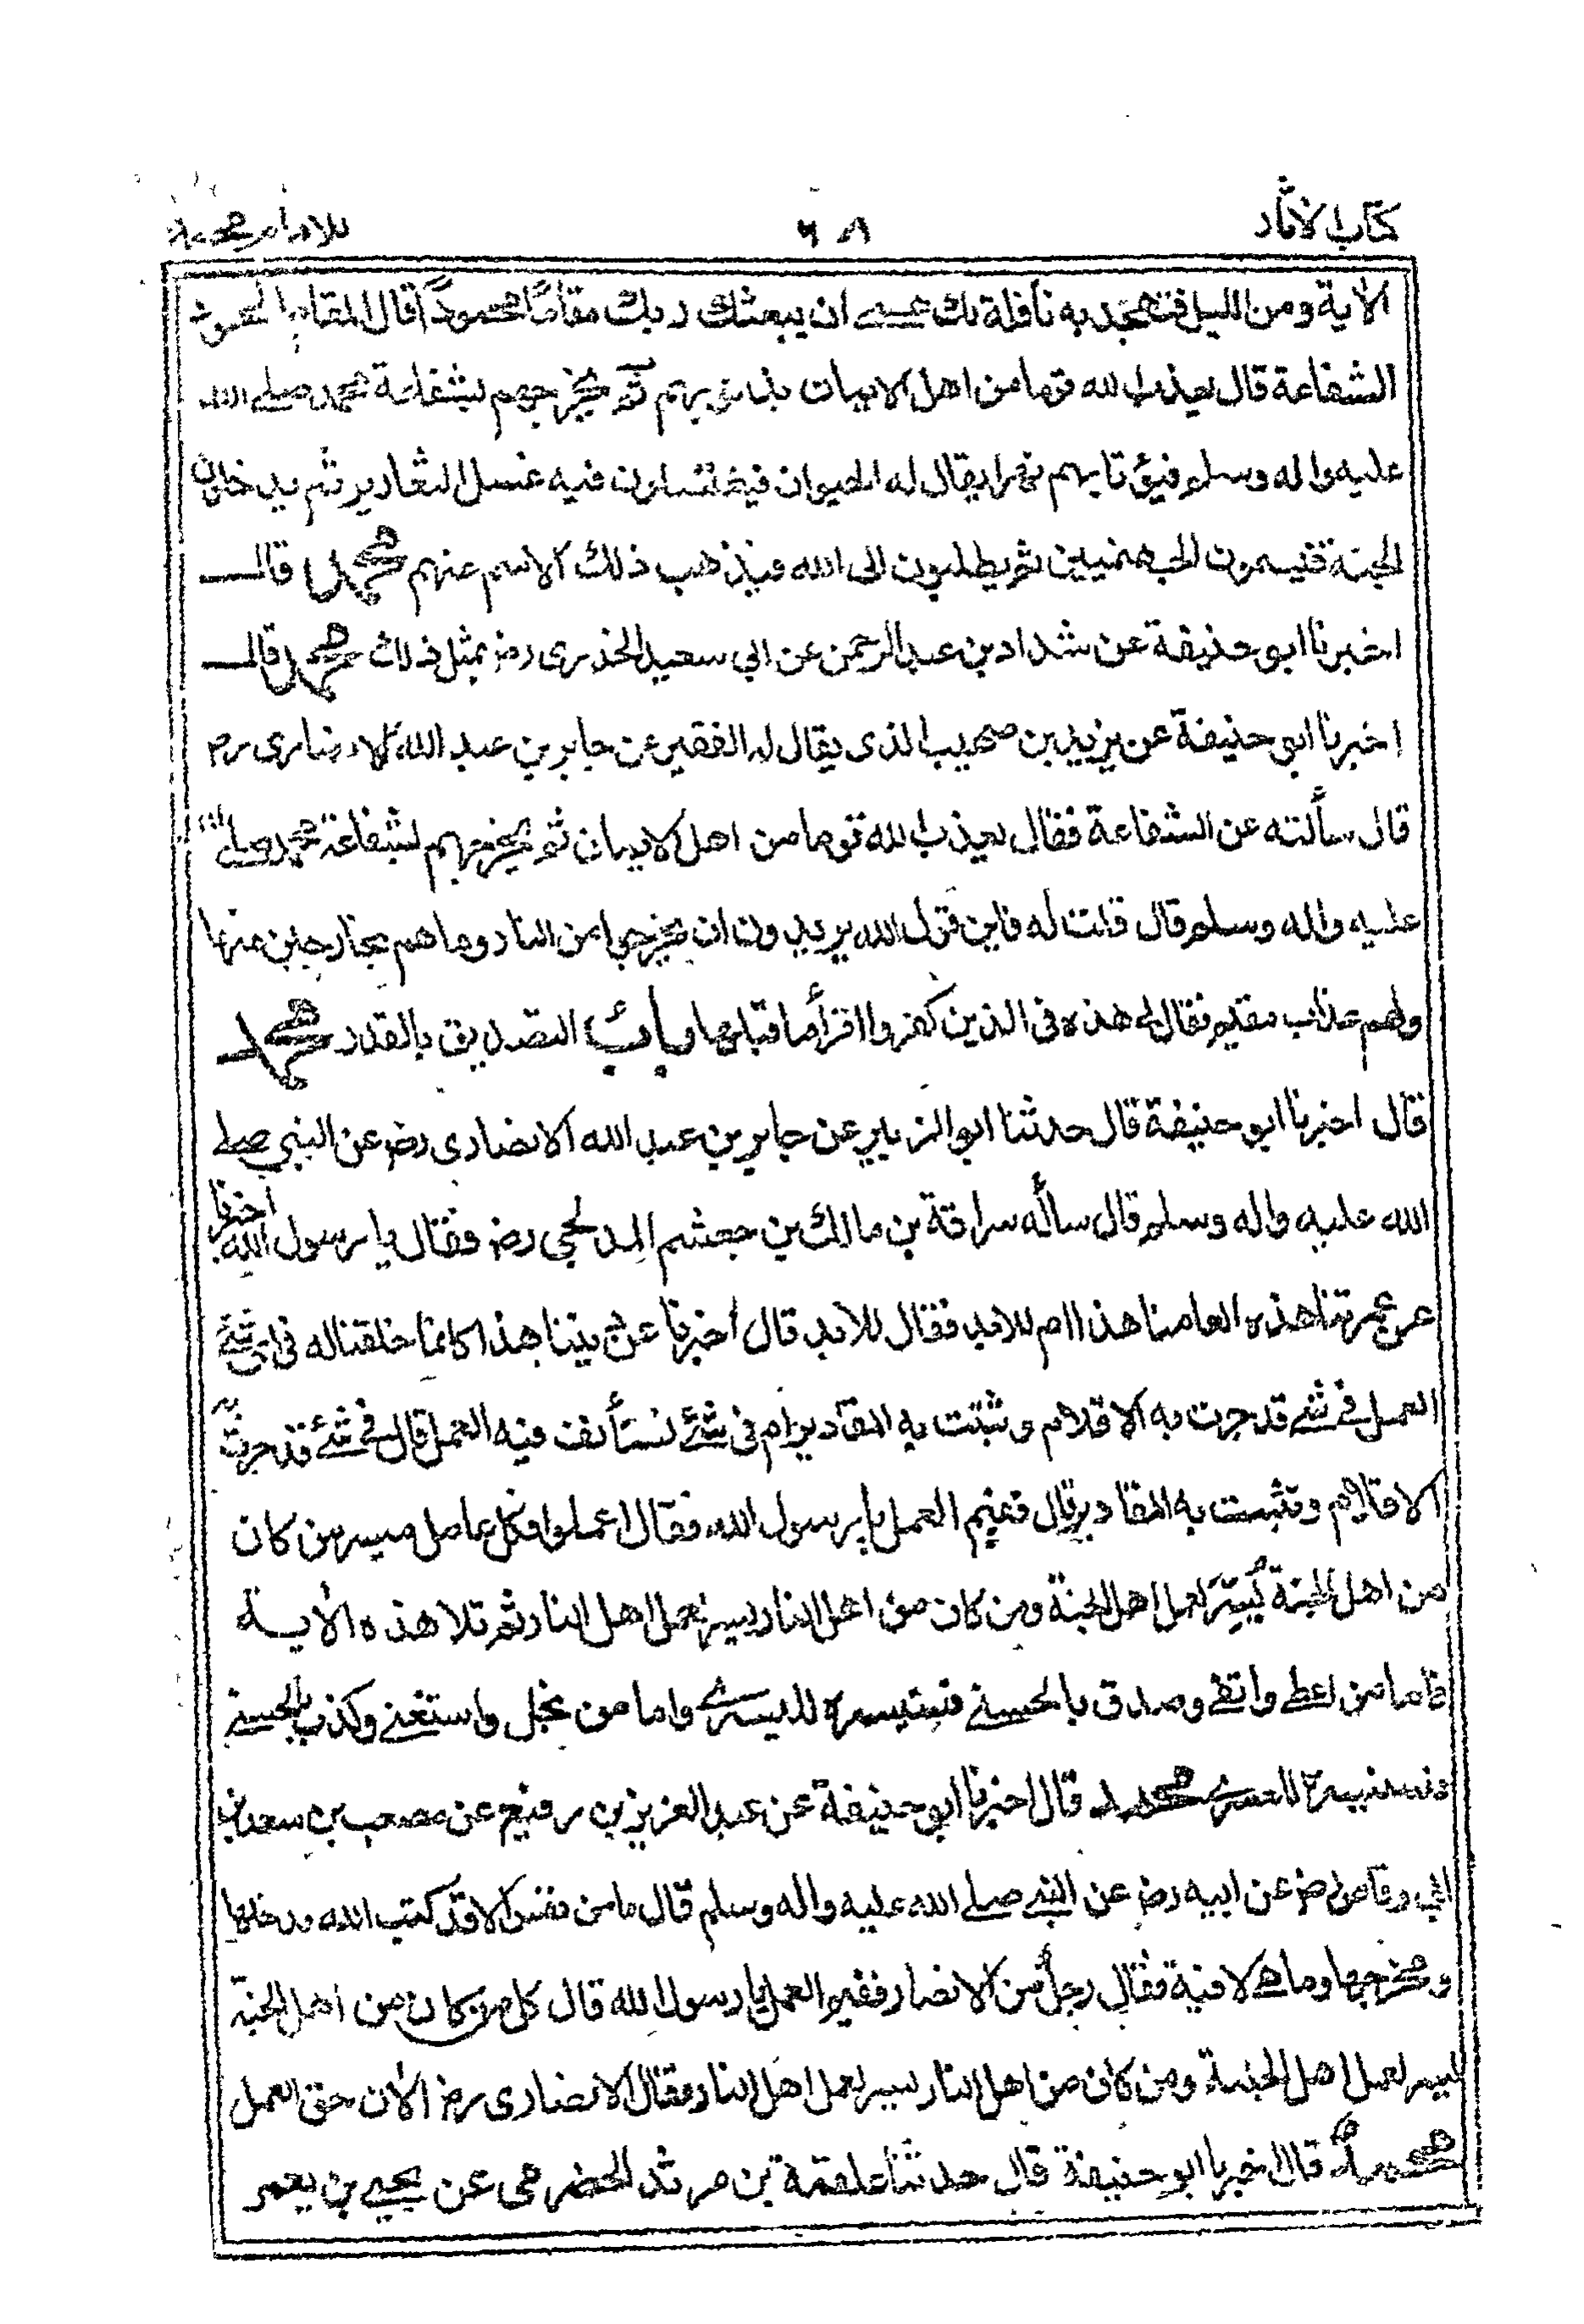 كتاب الآثار ٦٨ للامام محمد
الآية ومن الليل فتهجد به نافلة لك عسى ان يبعثك ربك مقاما محمودا قال المقام المحمود
الشفاعة قال يعذب الله قوما من اهل الايمان بذنوبهم ثم يخرجهم بشفاعة محمد صلى الله
عليه واله وسلم فيؤتا بهم نهرا يقال له الحيوان فيغتسلون فيه غسل الثعارير ثم يدخلون
الجنة فيسمون الجهنميين ثم يطلبون الى الله فيذهب ذلك الاسم عنهم محمد قال
اخبرنا ابو حنيفة عن شداد بن عبد الرحمن عن ابي سعيد الخدري رض بمثل ذلك محمد قال
اخبرنا ابو حنيفة عن يزيد بن صهيب الذي يقال له الفقير عن جابر بن عبد الله الانصاري رض
قال سألته عن الشفاعة فقال يعذب الله قوما من اهل الايمان ثم يخرجهم بشفاعة محمد صلى الله
عليه واله وسلم قال قلت له فاين قول الله يريدون ان يخرجوا من النار وما هم بخارجين منها
ولهم عذاب مقيم فقال لي هذه في الذين كفروا اقرأ ما قبلها باب التصديق بالقدر محمد
قال اخبرنا ابو حنيفة قال حدثنا ابو الزبير عن جابر بن عبد الله الانصاري رض عن النبي صلى
الله عليه واله وسلم قال سأله سراقة بن مالك بن جعشم المدلجي رض فقال يا رسول الله اخبرنا
عن عمرتنا هذه العامنا هذا ام للابد فقال للابد قال أخبرنا عن ديننا هذا كانما خلقنا له في اى شئ
العمل في شئ قد جرت به الاقلام وثبتت به المقادير ام في شئ نستأنف فيه العمل قال في شئ قد جرت به
الاقلام وثبتت به المقادير قال ففيم العمل يا رسول الله فقال اعملوا فكل عامل ميسر من كان
من اهل الجنة يُيَسّر لعمل اهل الجنة ومن كان من اهل النار يسر لعمل اهل النار ثم تلا هذه الآية
فاما من اعطى واتقى وصدق بالحسنى فسنيسره لليسرى واما من بخل واستغنى وكذب بالحسنى
فسنيسره للعسرى محمد قال اخبرنا ابو حنيفة عن عبد العزيز بن رفيع عن مصعب بن سعد بن
ابي وقاص رض عن ابيه رض عن النبي صلى الله عليه واله وسلم قال ما من نفس الا قد كتب الله مدخلها
ومخرجها وما هي لاقية فقال رجل من الانصار ففيم العمل يا رسول الله قال كل من كان من اهل الجنة
يسر لعمل اهل الجنة ومن كان من اهل النار يسر لعمل اهل النار فقال الانصاري رض الآن حق العمل
محمد قال اخبرنا ابو حنيفة قال حدثنا علقمة بن مرثد الحضرمي عن يحيى بن يعمر